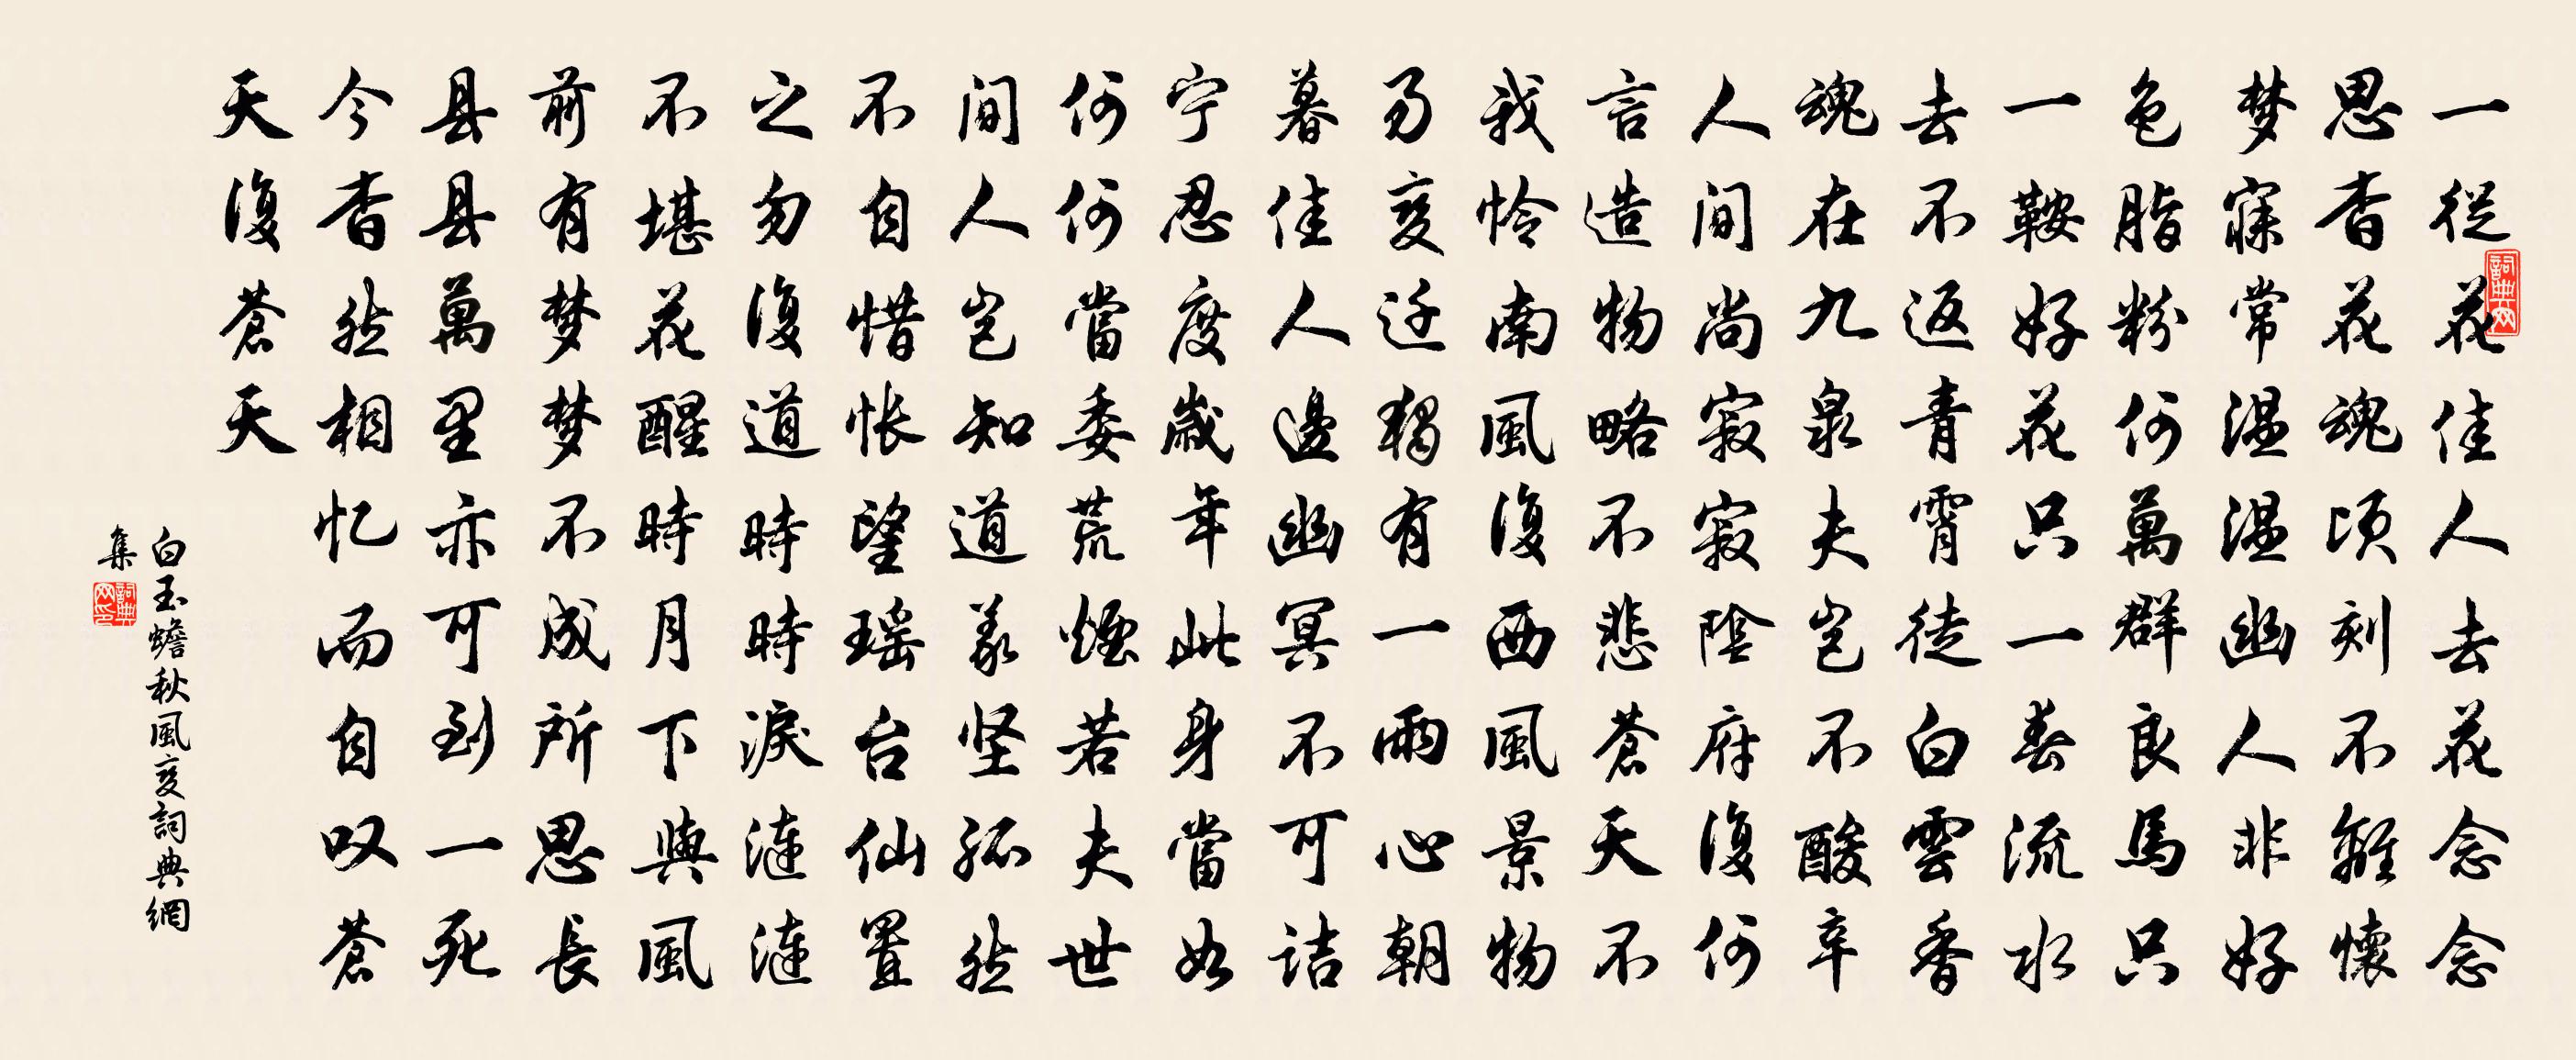 一從花佳人去花念念
思杳花魂頃刻不離懷
梦寐常温温幽人非好
色脂粉何萬群良馬只
一鞍好花只一春流水
去不返青霄徒白雲香
魂在九泉夫豈不酸辛
人间尚寂寂陰府復何
言造物略不悲蒼天不
我怜南風復西風景物
易变迁獨有一雨心朝
暮佳人邊幽冥不可诘
宁忍度歲年此身當如
何何當委荒煙若夫世
间人豈知道義坚孤然
不自惜怅望瑶台仙置
之勿復道時時淚涟涟
不堪花醒時月下與風
前有梦梦不成所思長
县县萬里亦可到一死
今杳然相忆而自叹蒼
天復蒼天
白玉蟾秋風变詞典網
集
詞典网
詞典网印